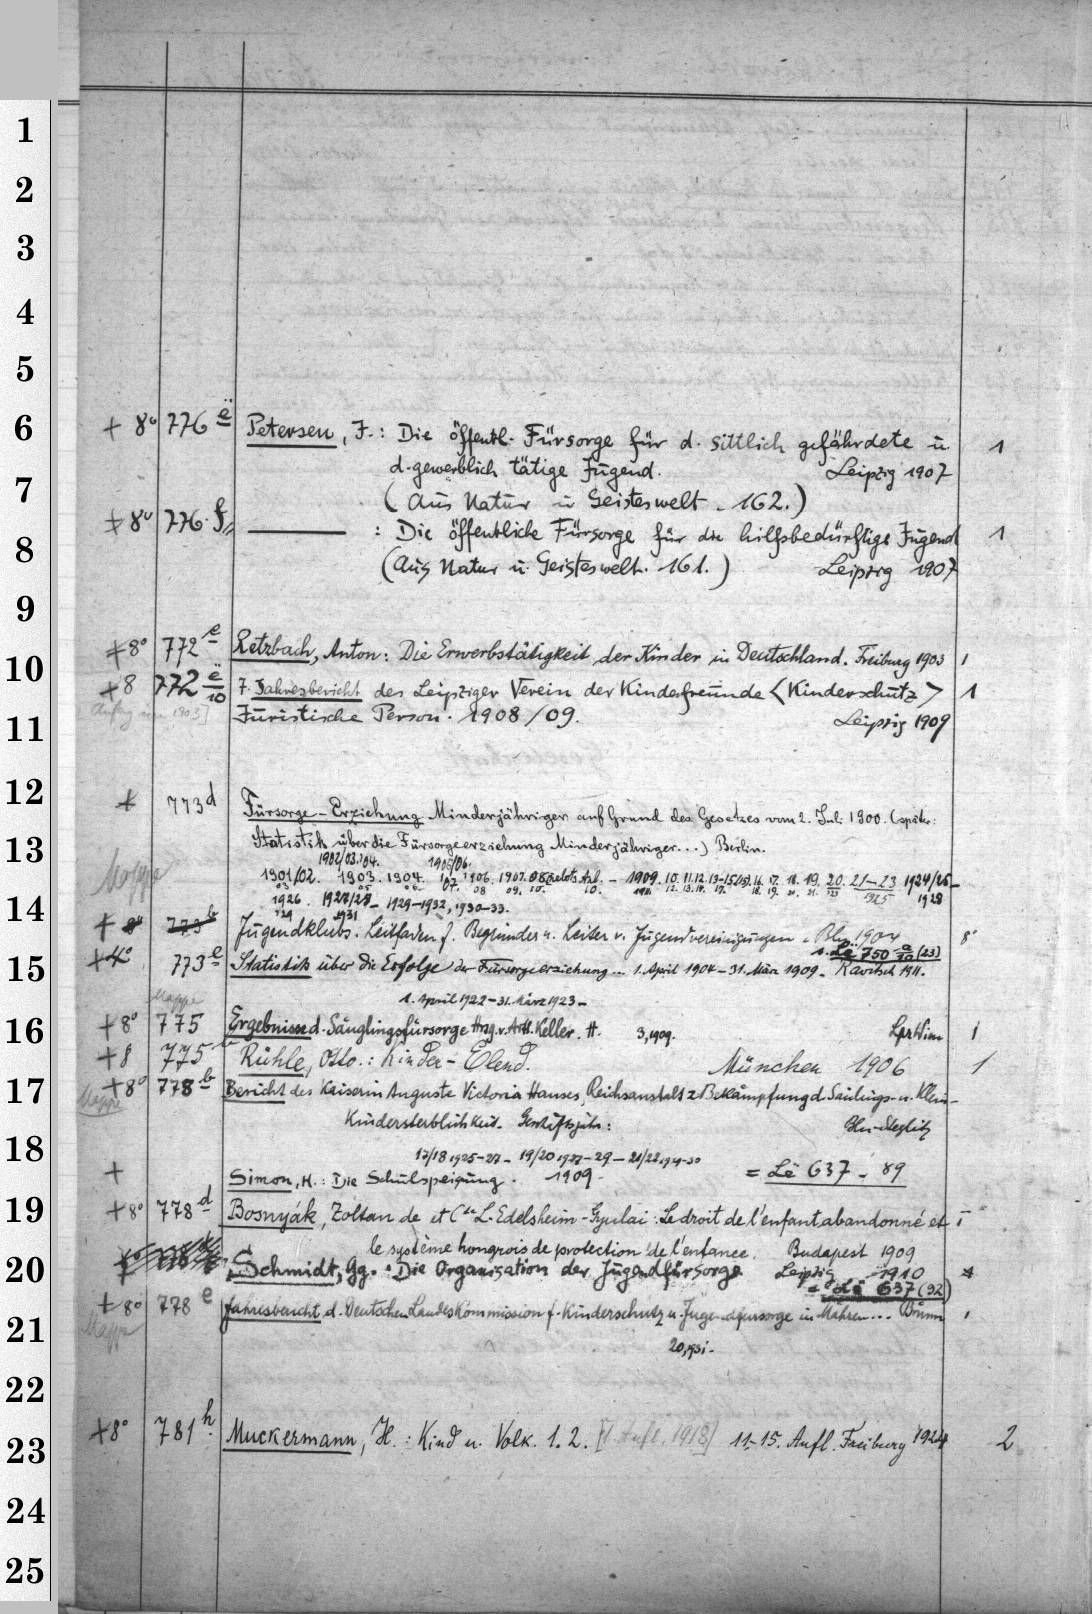 1
2
3
4
5
6
+ 8° 776 ë Petersen, J.: Die öffentl. Fürsorge für d. sittlich gefährdete u 1
d. gewerblich tätige Jugend. Leipzig 1907
7
(Aus Natur u Geisteswelt. 162.)
+ 8° 776 f. : Die öffentliche Fürsorge für die hilfsbedürftige Jugend 1
8
(Aus Natur u. Geisteswelt. 161.) Leipzig 1907
9
+ 8° 772 e Retzbach, Anton: Die Erwerbstätigkeit der Kinder in Deutschland. Freiburg 1903 1
10
+ 8 772 ë/10 7. Jahresbericht des Leipziger Verein der Kinderfreunde <Kinderschutz> 1
Juristische Person. 1908/09. Leipzig 1909
11
12
+ 773 d Fürsorge-Erziehung Minderjähriger auf Grund des Gesetzes vom 2. Juli 1900. (später:
13
Statistik über die Fürsorgeerziehung Minderjähriger...) Berlin.
1902/03. 04. 1905/06.
Mappe
1901/02. 1903. 1904. 1906. 1907. 08 1909. 10. 11. 12. 13-15 16. 17. 18. 19. 20. 21-23 1924/25-
14
1926. 1927/28- 1929-1932, 1930-33.
'29 1931
+ 8° 773 b Jugendklubs. Leitfaden f. Begründer u. Leiter v. Jugendvereinigungen. Bln. 1904 8°
Lë 750 (23)
15
+ 4° 773 e Statistik über die Erfolge der Fürsorgeerziehung... 1. April 1904-31. März 1909. Rawitsch 1911.
1. April 1922-31. März 1923-
Mappe
16
+ 8° 775 Ergebnisse d. Säuglingsfürsorge Hrsg. v. Arth. Keller. H. 3, 1909. Lpz Wien 1
+ 8 775 Rühle, Otto.: Kinder-Elend. München 1906 1
17
+ 8° 778 b Bericht des Kaiserin Auguste Victoria Hauses, Reichsanstalt z Bekämpfung d. Säuglings- u. Klein-
Mappe
Kindersterblichkeit. Geschäftsjahr: Bln-Steglitz
18
17/18 1925-27- 19/20 1927-29-21/22 1929-30
+ Simon, H.: Die Schulspeisung. 1909. = Lë 637 - 89
19
+ 8° 778 d Bosnyák, Zoltan de et Cte L. Edelsheim-Gyulai: Le droit de l'enfant abandonné et 1
le système hongrois de protection de l'enfance. Budapest 1909
20
Schmidt, Gg.: Die Organisation der Jugendfürsorge Leipzig 1910
= Lë 637 (92)
+ 8° 778 e Jahresbericht d. Deutschen Landeskommission f. Kinderschutz u. Jugendfürsorge in Mähren... Brünn 1
Mappe
21
20, 1931-
22
+ 8° 781 h Muckermann, H.: Kind u. Volk. 1. 2. [1. Aufl. 1918] 11-15. Aufl. Freiburg 1924 2
23
24
25